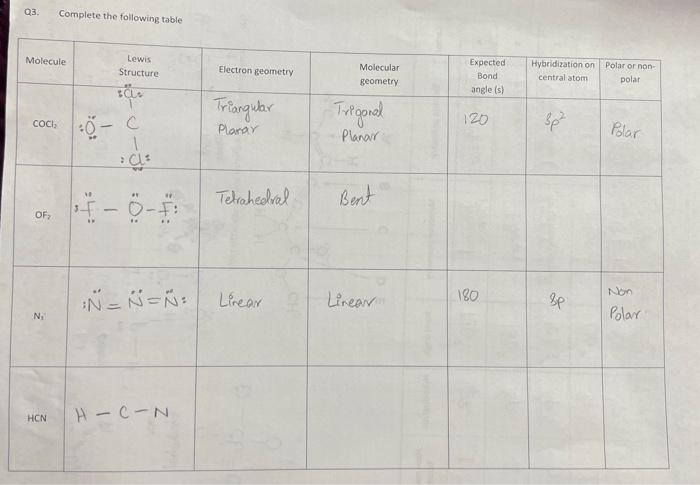 Q3. Complete the following table
Molecule
Lewis
Structure
Electron geometry
Molecular
geometry
Expected
Bond
angle (s)
Hybridization on
central atom
Polar or non-
polar
COCl₂
:C̈l:
|
:Ö̤ – C
|
:C̤l:
Triangular
Planar
Trigonal
Planar
120
Sp²
Polar
OF₂
:F̤̈ – Ö̤ – F̤̈:
Tetrahedral
Bent
N₃⁻
:N̈ = N̈ = N̈:
Linear
Linear
180
Sp
Non
Polar
HCN
H – C – N